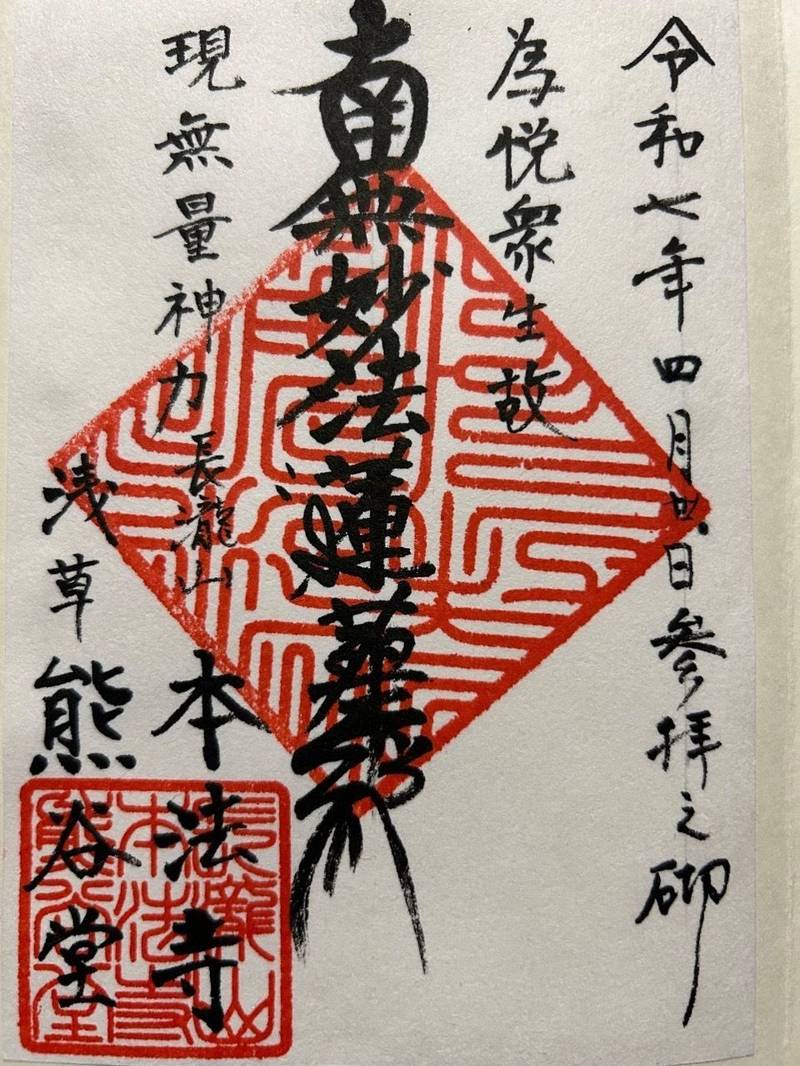 令和七年四月廿日参拝之砌
為悦衆生故
南無妙法蓮華経
現無量神力
長瀧山
本法寺
浅草
熊谷堂
長瀧山
本法寺
熊谷堂